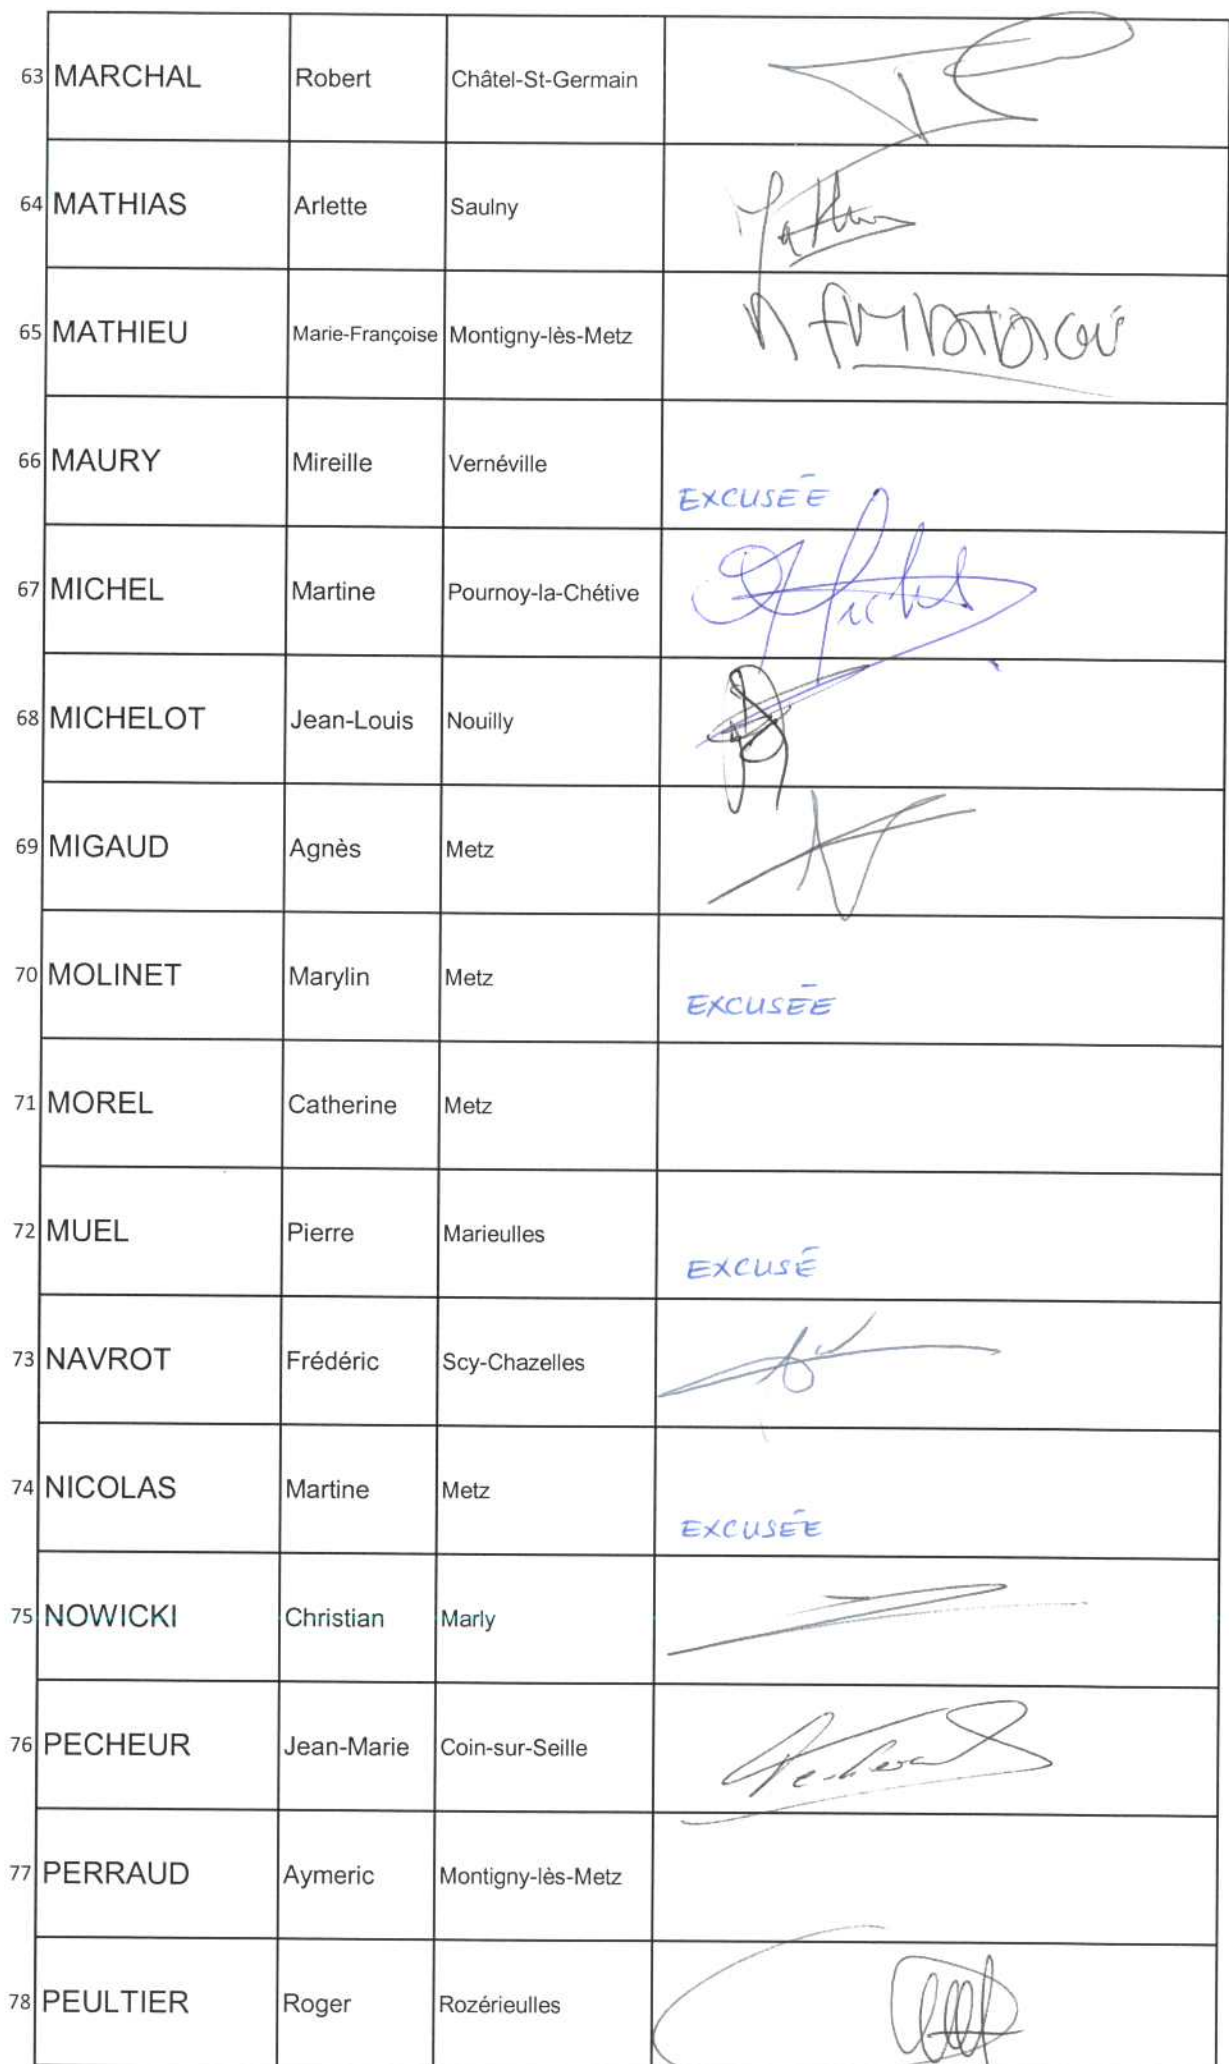 63 MARCHAL Robert Châtel-St-Germain
64 MATHIAS Arlette Saulny
65 MATHIEU Marie-Françoise Montigny-lès-Metz
66 MAURY Mireille Vernéville EXCUSÉE
67 MICHEL Martine Pournoy-la-Chétive
68 MICHELOT Jean-Louis Nouilly
69 MIGAUD Agnès Metz
70 MOLINET Marylin Metz EXCUSÉE
71 MOREL Catherine Metz
72 MUEL Pierre Marieulles EXCUSÉ
73 NAVROT Frédéric Scy-Chazelles
74 NICOLAS Martine Metz EXCUSÉE
75 NOWICKI Christian Marly
76 PECHEUR Jean-Marie Coin-sur-Seille
77 PERRAUD Aymeric Montigny-lès-Metz
78 PEULTIER Roger Rozérieulles